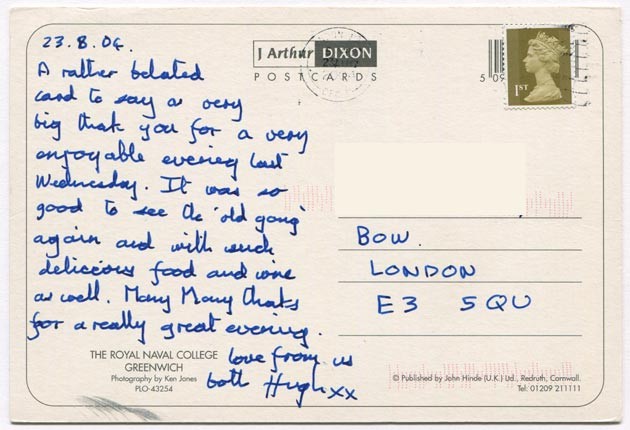 23.8.06.
A rather belated
card to say a very
big thank you for a very
enjoyable evening last
Wednesday. It was so
good to see the 'old gang'
again and with such
delicious food and wine
as well. Many Many Thanks
for a really great evening.
love from us
both Hugh xx
THE ROYAL NAVAL COLLEGE
GREENWICH
Photography by Ken Jones
PLO-43254
J Arthur DIXON
POSTCARDS
5 09
1ST
BOW.
LONDON
E3 5QU
© Published by John Hinde (U.K.) Ltd., Redruth, Cornwall.
Tel: 01209 211111